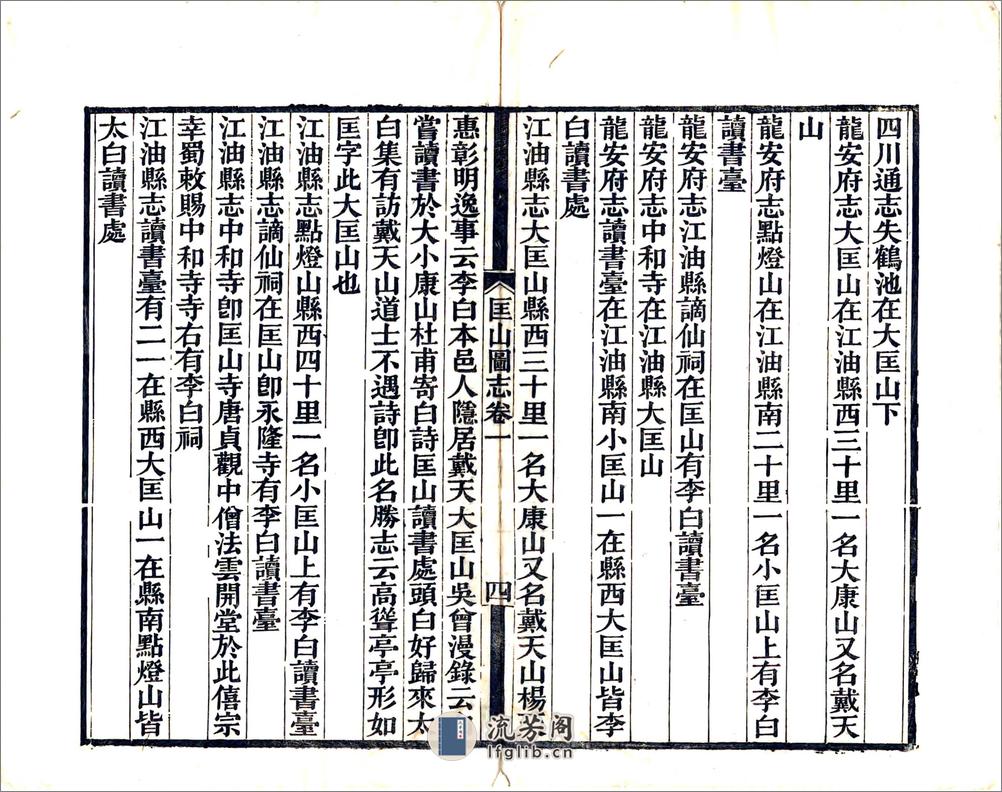 四川通志失鶴池在大匡山下
龍安府志大匡山在江油縣西三十里一名大康山又名戴天
山
龍安府志點燈山在江油縣南二十里一名小匡山上有李白
讀書臺
龍安府志江油縣謫仙祠在匡山有李白讀書臺
龍安府志中和寺在江油縣大匡山
龍安府志讀書臺在江油縣南小匡山一在縣西大匡山皆李
白讀書處
江油縣志大匡山縣西三十里一名大康山又名戴天山楊
匡山圖志卷一
四
惠彰明逸事云李白本邑人隱居戴天大匡山吳曾漫錄云
嘗讀書於大小康山杜甫寄白詩匡山讀書處頭白好歸來太
白集有訪戴天山道士不遇詩卽此名勝志云高聳亭亭形如
匡字此大匡山也
江油縣志點燈山縣西四十里一名小匡山上有李白讀書臺
江油縣志謫仙祠在匡山卽永隆寺有李白讀書臺
江油縣志中和寺卽匡山寺唐貞觀中僧法雲開堂於此僖宗
幸蜀敕賜中和寺寺右有李白祠
江油縣志讀書臺有二一在縣西大匡山一在縣南點燈山皆
太白讀書處
流芳阁
lfglib.cn